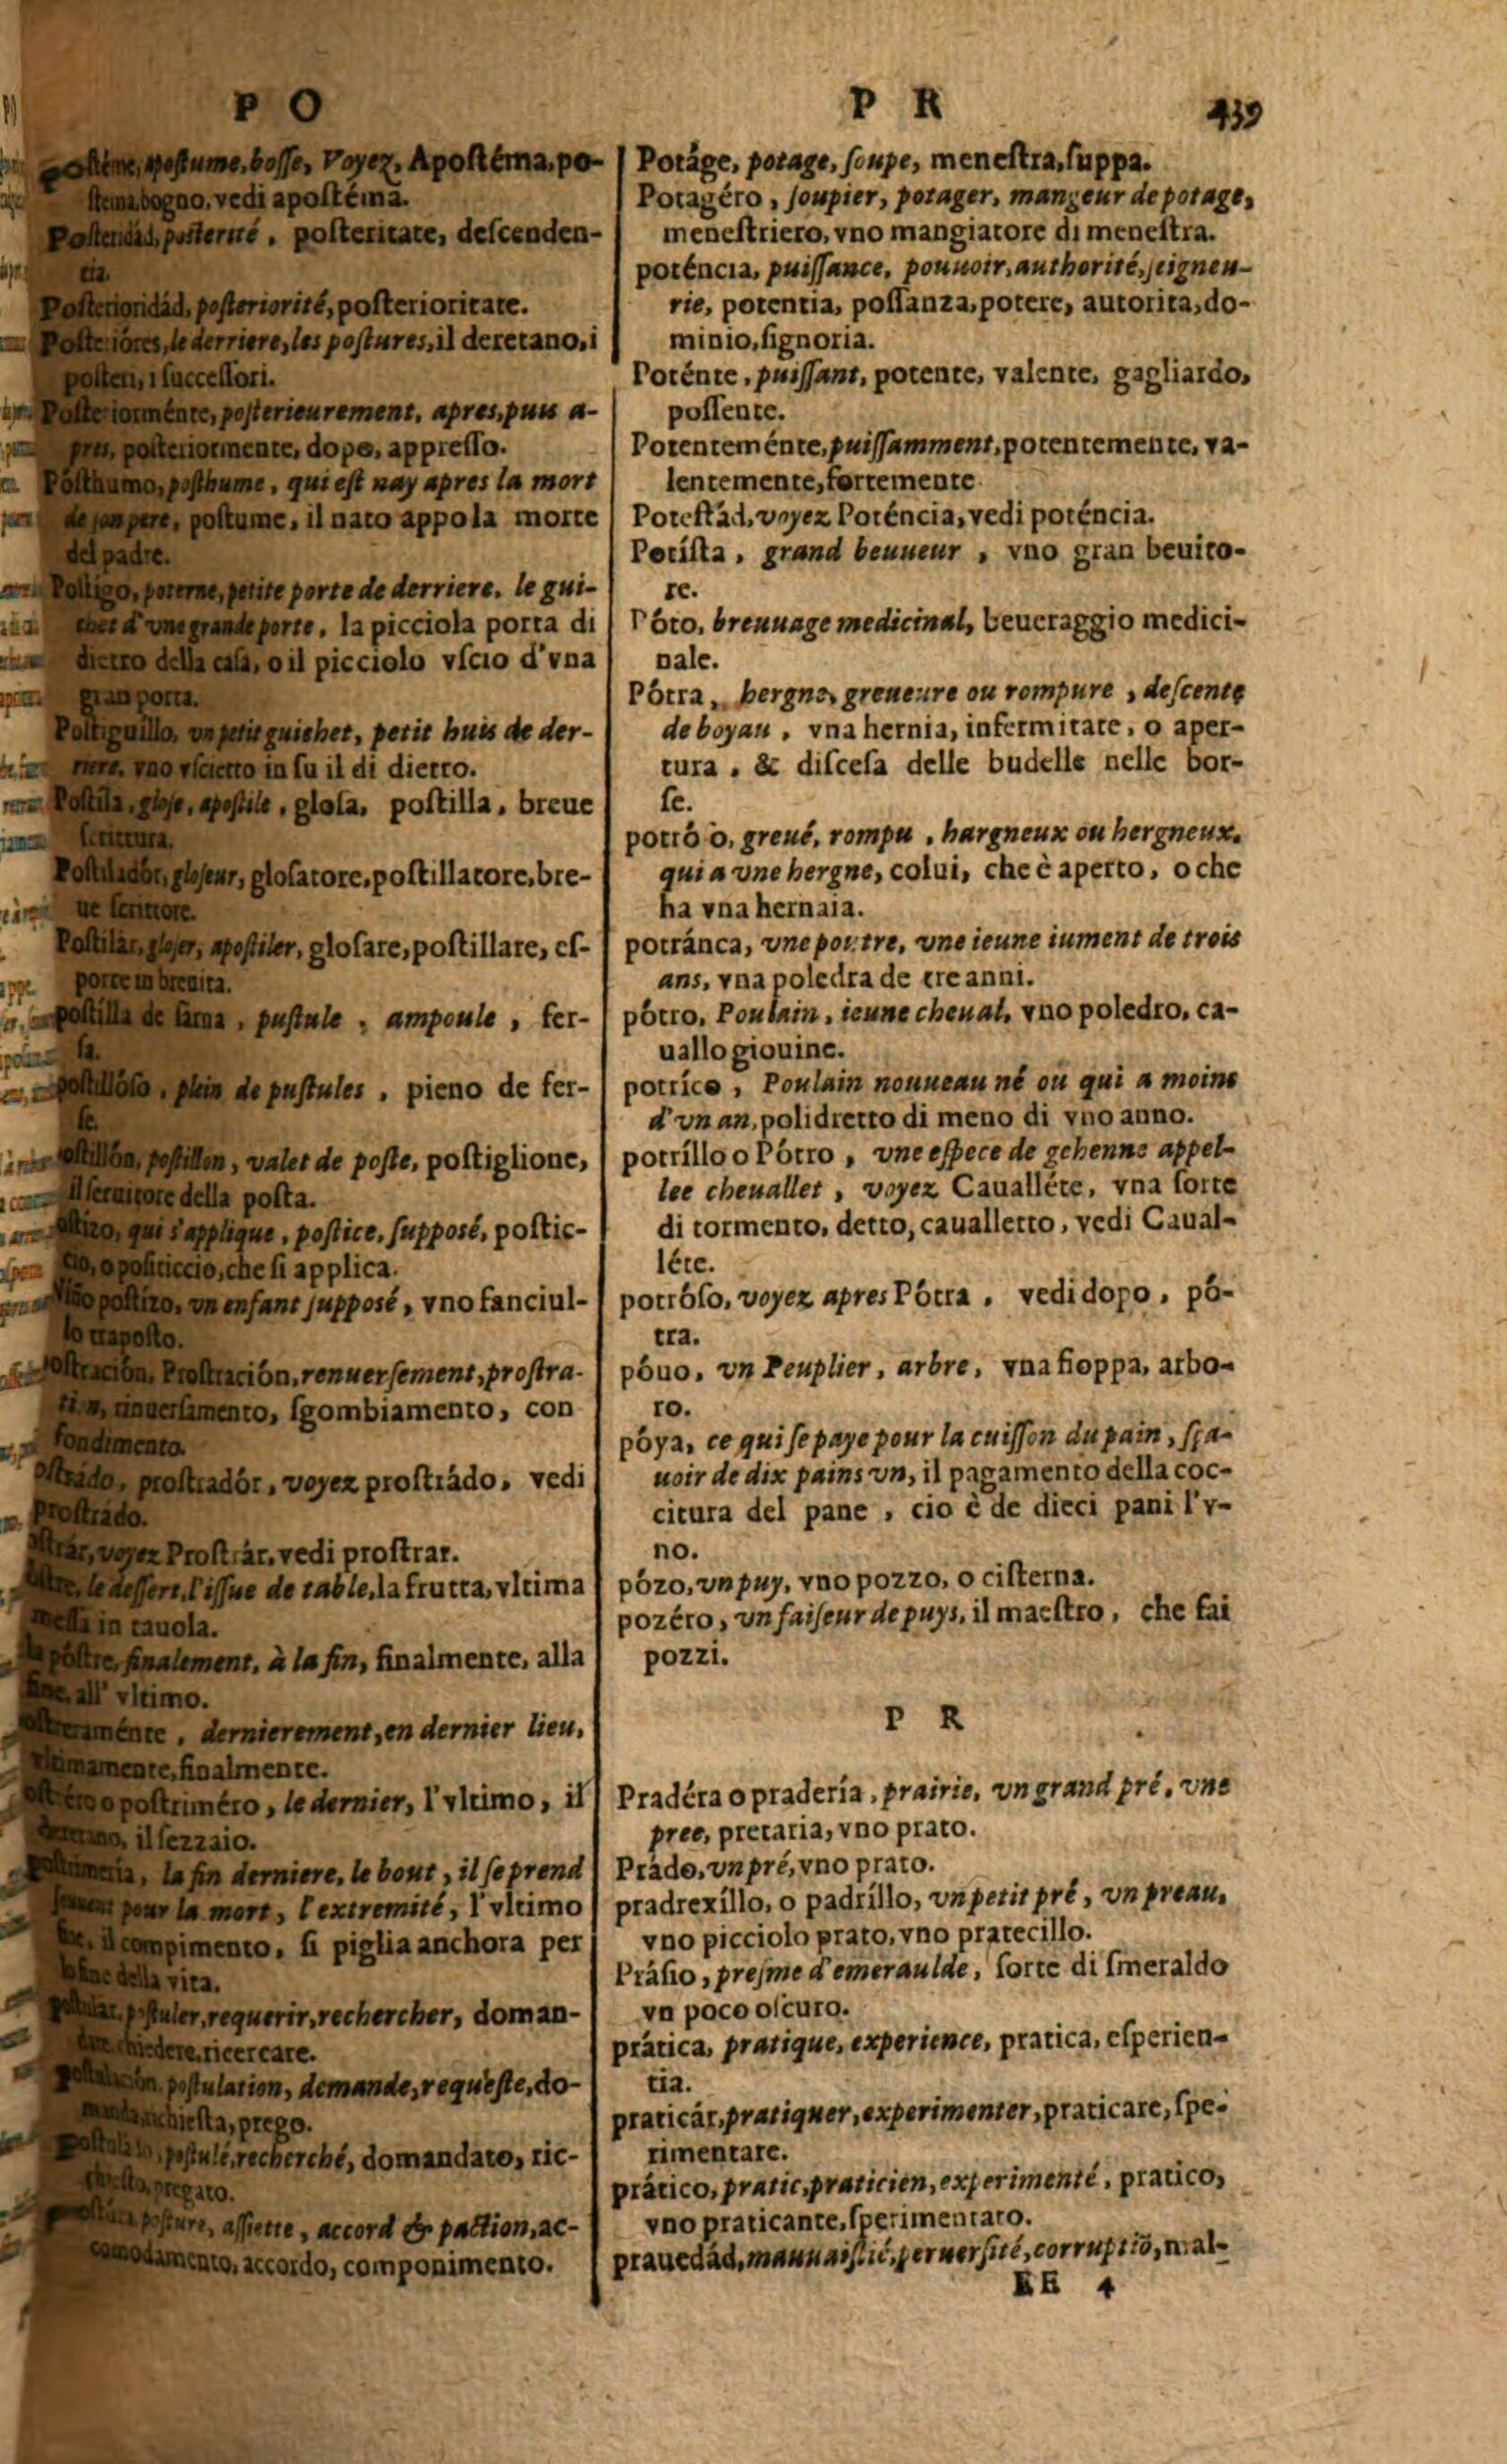 P O
apoſtume, boſſe, Voyez, Apoſtéma, po-
ſtema, bogno, vedi apoſtéma.
Poſteridád, poſterité, poſteritate, deſcenden-
tia.
Poſterioridád, poſteriorité, poſterioritate.
Poſterióres, le derriere, les poſtures, il deretano, i
poſteri, i ſucceſſori.
Poſteriorménte, poſterieurement, apres, puis a-
pres, poſteriormente, dopo, appreſſo.
Póſthumo, poſthume, qui eſt nay apres la mort
de ſon pere, poſtume, il nato appo la morte
del padre.
Poſtigo, poterne, petite porte de derriere, le gui-
chet d'vne grande porte, la picciola porta di
dietro della caſa, o il picciolo vſcio d'vna
gran porta.
Poſtiguillo, vn petit guichet, petit huis de der-
riere, vno vſcietto in ſu il di dietro.
Poſtila, gloſe, apoſtile, gloſa, poſtilla, breue
ſcrittura.
Poſtiladór, gloſeur, gloſatore, poſtillatore, bre-
ue ſcrittore.
Poſtilar, gloſer, apoſtiler, gloſare, poſtillare, eſ-
porre in breuita.
poſtilla de ſarna, puſtule, ampoule, fer-
ſa.
poſtillóſo, plein de puſtules, pieno de fer-
ſe.
oſtillón, poſtillon, valet de poſte, poſtiglione,
il ſeruitore della poſta.
oſtizo, qui s'applique, poſtice, ſuppoſé, poſtic-
cio, o poſiticcio, che ſi applica.
Niño poſtizo, vn enfant ſuppoſé, vno fanciul-
lo trapoſto.
oſtración, Proſtración, renuerſement, proſtra-
tion, rinuerſamento, ſgombiamento, con
fondimento.
oſtrádo, proſtradór, voyez proſtrádo, vedi
Proſtrádo.
oſtrár, voyez Proſtrár, vedi proſtrar.
oſtre, le deſſert, l'iſſue de table, la frutta, vltima
meſſa in tauola.
póſtre, finalement, à la fin, finalmente, alla
fine, all' vltimo.
oſtreraménte, dernierement, en dernier lieu,
vltimamente, finalmente.
oſtréro o poſtriméro, le dernier, l'vltimo, il
deretano, il ſezzaio.
Poſtrimería, la fin derniere, le bout, il ſe prend
ſouuent pour la mort, l'extremité, l'vltimo
fine, il compimento, ſi piglia anchora per
la fine della vita.
Poſtular, poſtuler, requerir, rechercher, doman-
dare, chiedere, ricercare.
Poſtulación, poſtulation, demande, requeſte, do-
manda, richieſta, prego.
Poſtulato, poſtulé, recherché, domandato, ric-
chieſto, pregato.
Poſtúra, poſture, aſſiette, accord & paction, ac-
comodamento, accordo, componimento.
P R 439
Potáge, potage, ſoupe, meneſtra, ſuppa.
Potagéro, ſoupier, potager, mangeur de potage,
meneſtriero, vno mangiatore di meneſtra.
poténcia, puiſſance, pouuoir, authorité, ſeigneu-
rie, potentia, poſſanza, potere, autorita, do-
minio, ſignoria.
Poténte, puiſſant, potente, valente, gagliardo,
poſſente.
Potenteménte, puiſſamment, potentemente, va-
lentemente, fortemente.
Poteſtád, voyez Poténcia, vedi poténcia.
Potíſta, grand beuueur, vno gran beuito-
re.
Póto, breuuage medicinal, beueraggio medici-
nale.
Pótra, hergne, greueure ou rompure, deſcente
de boyau, vna hernia, infermitate, o aper-
tura, & diſceſa delle budelle nelle bor-
ſe.
potróſo, greué, rompu, hargneux ou hergneux,
qui a vne hergne, colui, che è aperto, o che
ha vna hernaia.
potránca, vne poutre, vne ieune iument de trois
ans, vna poledra de tre anni.
pótro, Poulain, ieune cheual, vno poledro, ca-
uallo giouine.
potríco, Poulain nouueau né ou qui a moins
d'vn an, polidretto di meno di vno anno.
potríllo o Pótro, vne eſpece de gehenne appel-
lee cheuallet, voyez Caualléte, vna ſorte
di tormento, detto, caualletto, vedi Caual-
léte.
potróſo, voyez apres Pótra, vedi dopo, pó-
tra.
póuo, vn Peuplier, arbre, vna fioppa, arbo-
ro.
póya, ce qui ſe paye pour la cuiſſon du pain, ſça-
uoir de dix pains vn, il pagamento della coc-
citura del pane, cio è de dieci pani l'v-
no.
pózo, vn puy, vno pozzo, o ciſterna.
pozéro, vn faiſeur de puys, il maeſtro, che fai
pozzi.
P R
Pradéra o pradería, prairie, vn grand pré, vne
pree, pretaria, vno prato.
Prádo, vn pré, vno prato.
pradrexíllo, o padríllo, vn petit pré, vn preau,
vno picciolo prato, vno pratecillo.
Práſio, preſme d'emeraulde, ſorte di ſmeraldo
vn poco oſcuro.
prática, pratique, experience, pratica, eſperien-
tia.
praticár, pratiquer, experimenter, praticare, ſpe-
rimentare.
prático, pratic, praticien, experimenté, pratico,
vno praticante, ſperimentato.
prauedád, mauuaiſtié, peruerſité, corruptiõ, mal-
EE 4